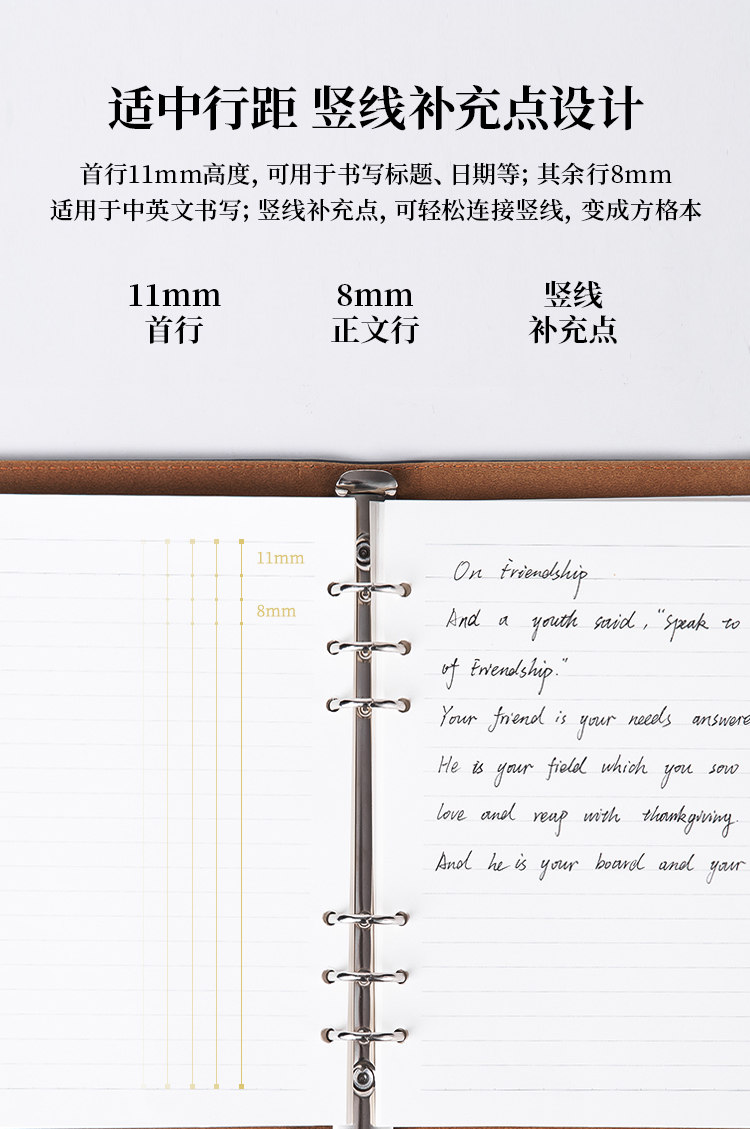 适中行距 竖线补充点设计
首行11mm高度，可用于书写标题、日期等；其余行8mm
适用于中英文书写；竖线补充点，可轻松连接竖线，变成方格本
11mm
首行
8mm
正文行
竖线
补充点
11mm
8mm
On Friendship
And a youth said, "Speak to
of Friendship."
Your friend is your needs answere
He is your field which you sow
love and reap with thankgiving.
And he is your board and your